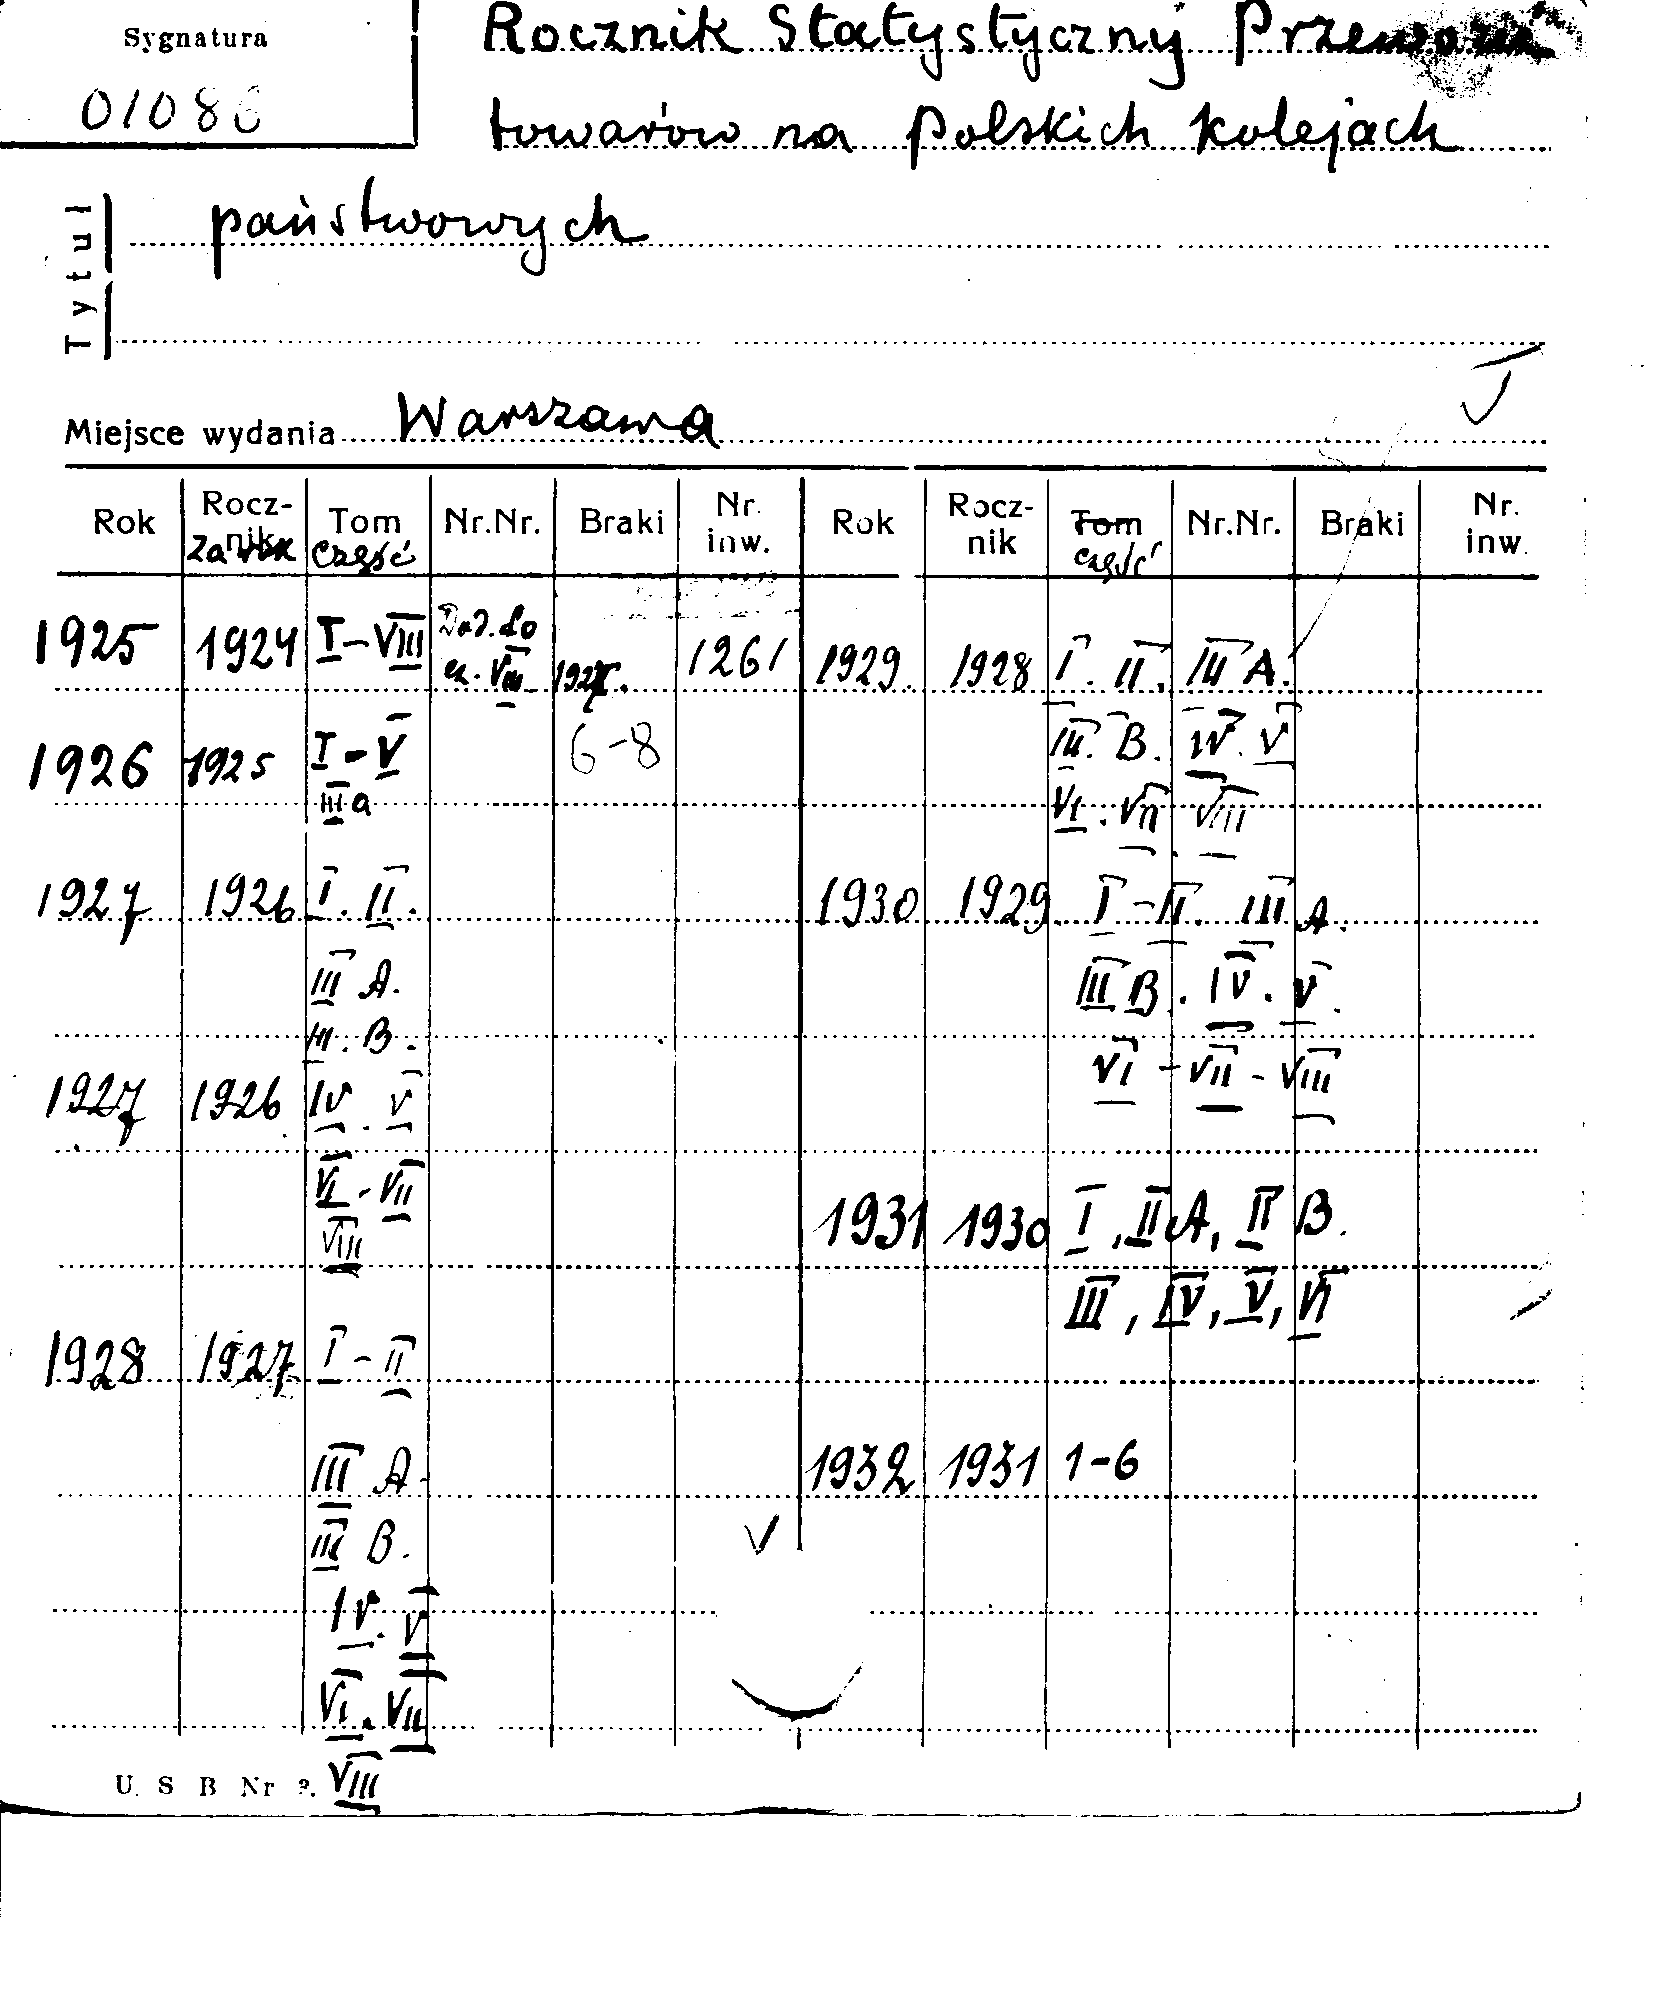 Sygnatura
01086
Rocznik Statystyczny Przewozu
towarów na Polskich kolejach
państwowych
Tytuł
Miejsce wydania Warszawa
Rok Rocz-nik za rok Tom część Nr.Nr. Braki Nr. inw. Rok Rocz-nik Tom część Nr.Nr. Braki Nr. inw.
1925 1924 I-VIII Dod. do cz. VIII 1261
1926 1925 I-V 6-8
IIIa
1927 1926 I. II.
III A.
III. B.
1927 1926 IV. V
VI-VII
VIII
1928 1927 I-II
III A.
III B.
IV. V
VI. VII
VIII
1929 1928 I. II. III A.
III. B. IV. V
VI. VII. VIII
1930 1929 I-II. III A.
III B. IV. V.
VI-VII-VIII
1931 1930 I, II A, II B.
III, IV, V, VI
1932 1931 1-6
V
U. S B Nr